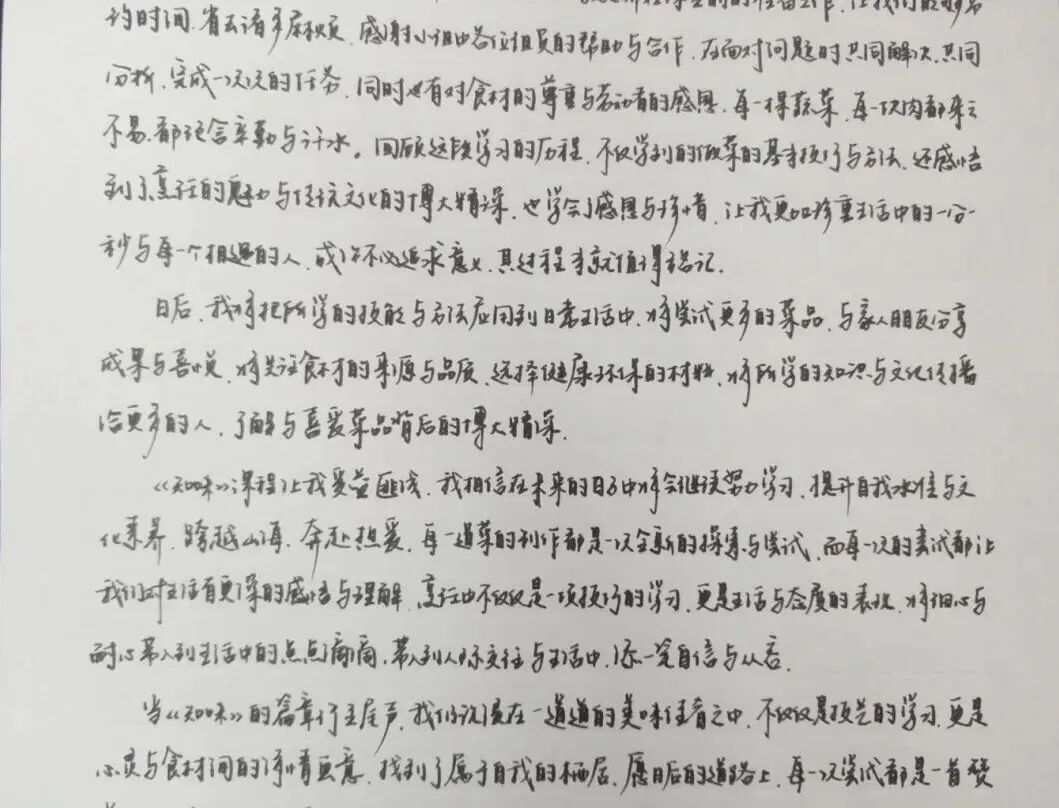 的时间,省去诸多麻烦,感谢小组内各位组员的帮助与合作,在面对问题时共同解决,共同
分析,完成一次次的任务,同时也有对食材的尊重与劳动者的感恩,每一棵蔬菜,每一块肉都来之
不易,都饱含辛勤与汗水。回顾这段学习的历程,不仅学到的做菜的基本技巧与方法,还感悟
到了烹饪的魅力与传统文化的博大精深,也学会了感恩与珍惜,让我更加珍重生活中的一分一
秒与每一个相遇的人,或许不必追求意义,其过程本就值得铭记.
日后,我将把所学的技能与方法应用到日常生活中,将尝试更多的菜品,与家人朋友分享
成果与喜悦,将关注食材的来源与品质,选择健康环保的材料,将所学的知识与文化传播
给更多的人,了解与喜爱菜品背后的博大精深.
《知味》课程让我受益匪浅,我相信在未来的日子中将会继续努力学习,提升自我水准与文
化素养,跨越山海,奔赴热爱,每一道菜的制作都是一次全新的探索与尝试,而每一次的尝试都让
我们对生活有更深的感悟与理解,烹饪中不仅仅是一项技巧的学习,更是生活与态度的表现,将细心与
耐心带入到生活中的点点滴滴,带入到人际交往与生活中,添一笔自信与从容.
当《知味》的篇章行至尾声,我们沉浸在一道道的美味佳肴之中,不仅仅是技艺的学习,更是
心灵与食材间的诗情画意,找到了属于自我的栖居,愿日后的道路上,每一次尝试都是一首赞